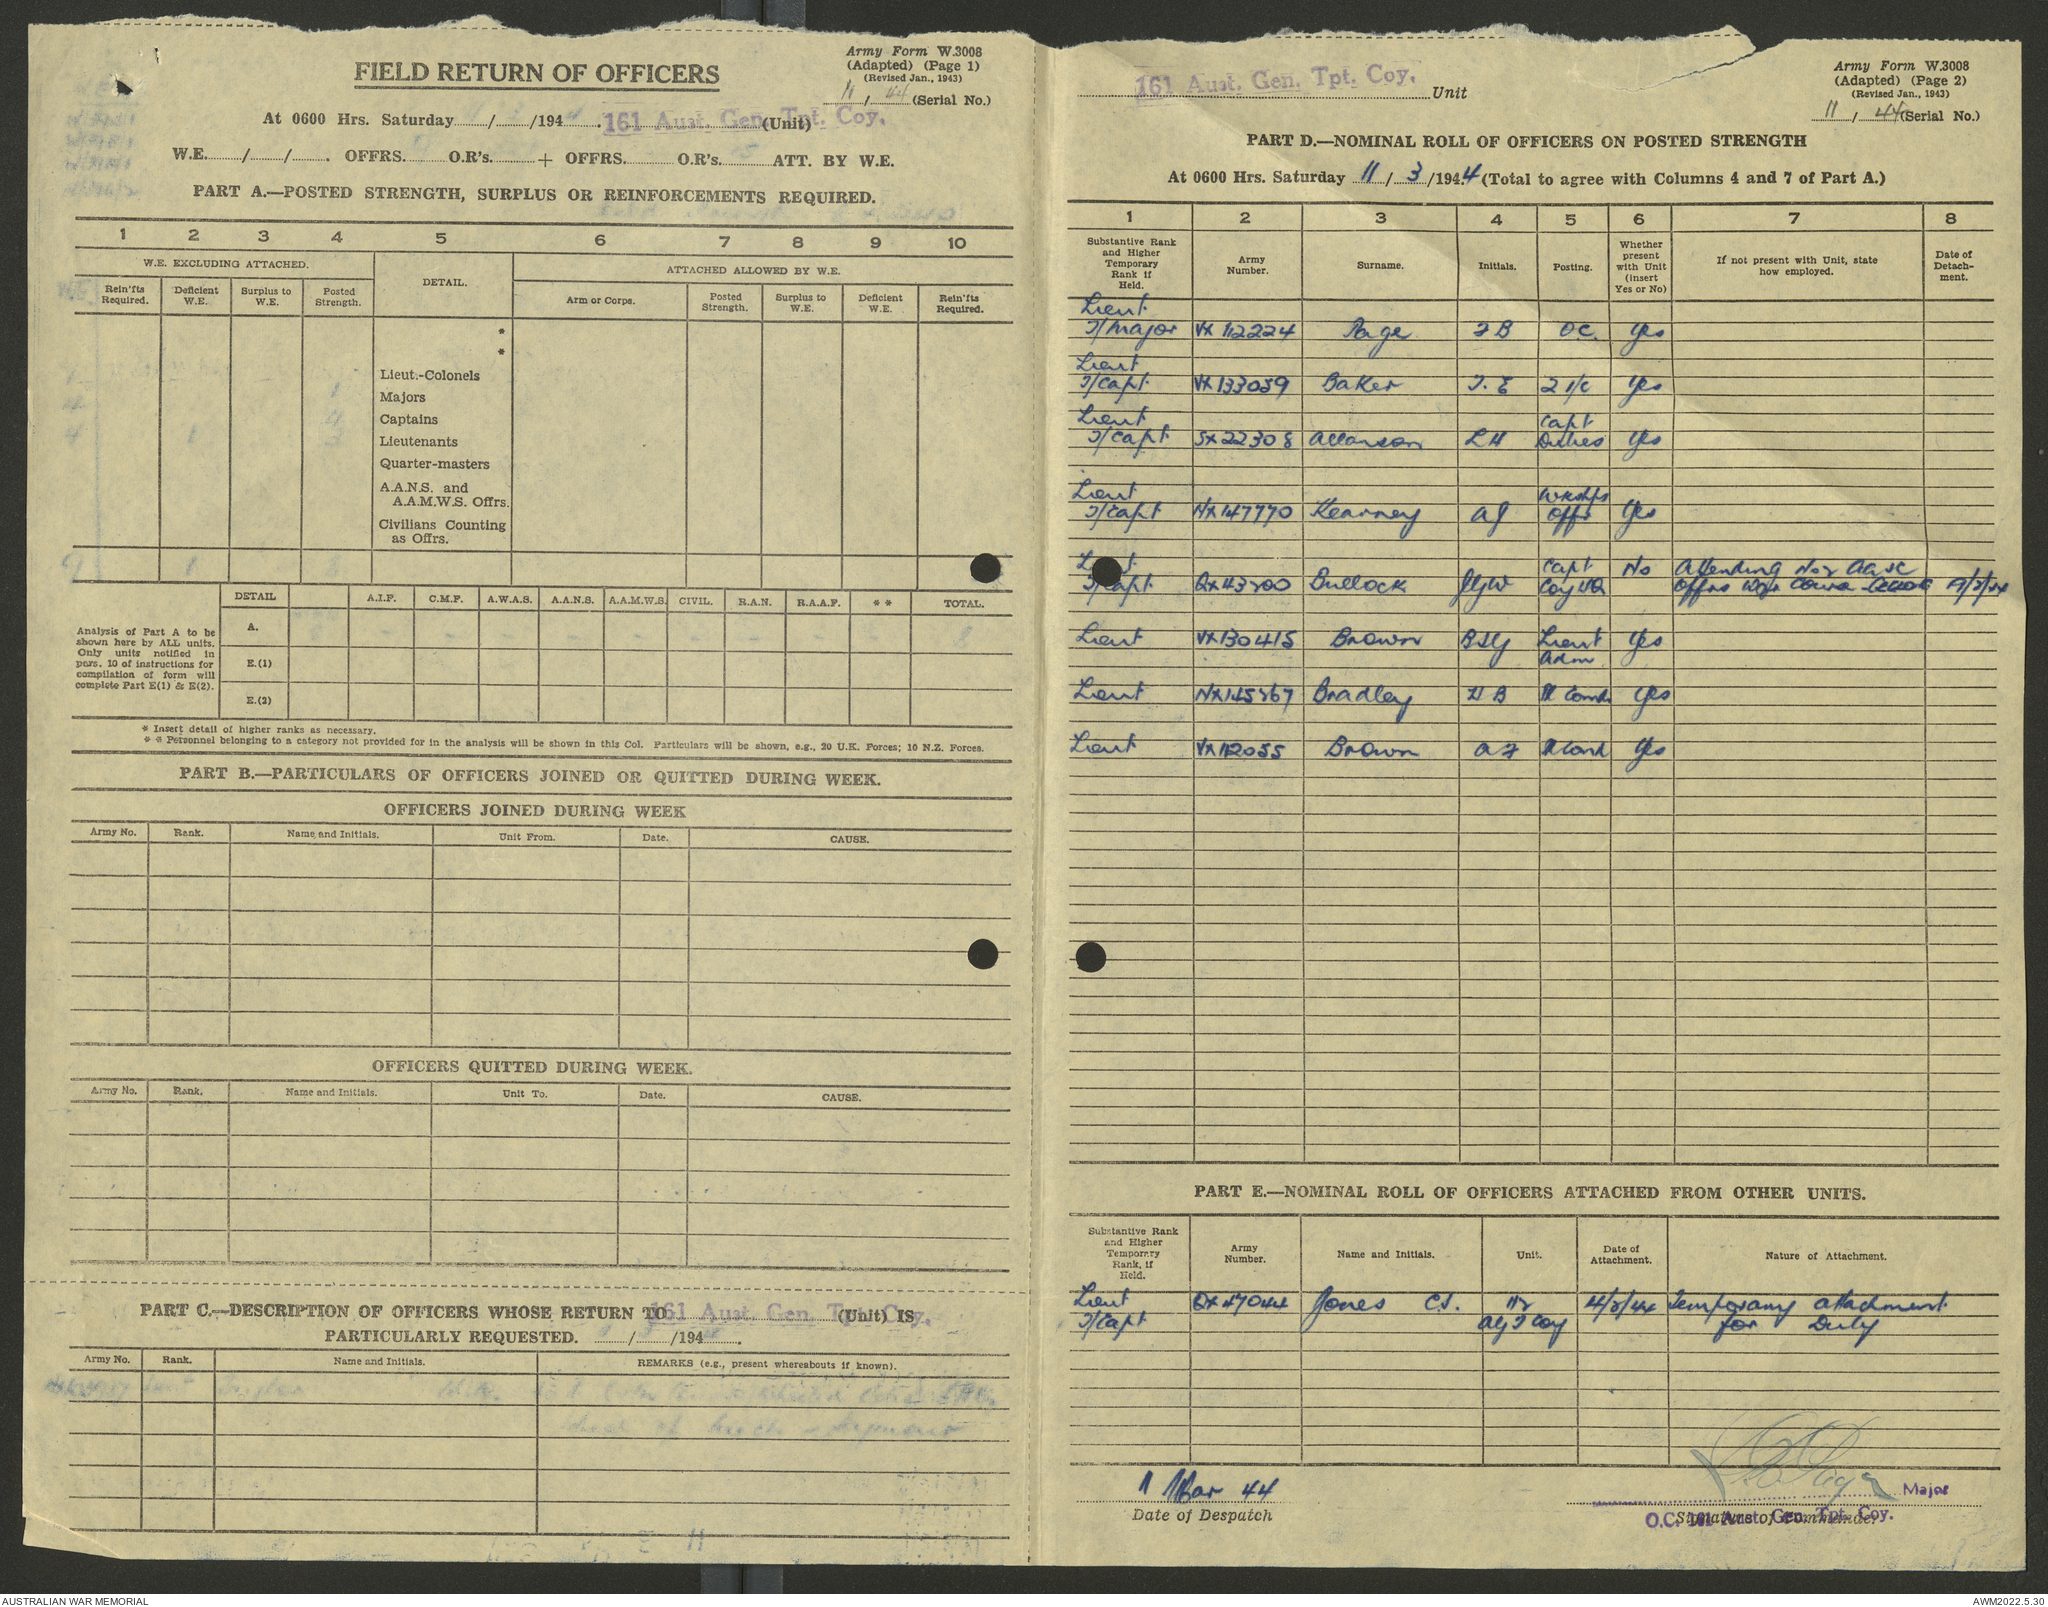 Army Form W.3008
(Adapted) (Page 1)
(Revised Jan., 1943)
11 / 44 (Serial No.)
FIELD RETURN OF OFFICERS
At 0600 Hrs. Saturday / /194 . 161 Aust. Gen. Tpt. Coy. (Unit)
W.E. / / . OFFRS. O.R's. + OFFRS. O.R's. ATT. BY W.E.
PART A.—POSTED STRENGTH, SURPLUS OR REINFORCEMENTS REQUIRED.
1 2 3 4 5 6 7 8 9 10
W.E. EXCLUDING ATTACHED. DETAIL. ATTACHED ALLOWED BY W.E.
Rein'fts Required. Deficient W.E. Surplus to W.E. Posted Strength. Arm or Corps. Posted Strength. Surplus to W.E. Deficient W.E. Rein'fts Required.
*
*
Lieut.-Colonels
1 Majors
4 Captains
Lieutenants
Quarter-masters
A.A.N.S. and
A.A.M.W.S. Offrs.
Civilians Counting
as Offrs.
DETAIL A.I.F. C.M.F. A.W.A.S. A.A.N.S. A.A.M.W.S. CIVIL. R.A.N. R.A.A.F. * * TOTAL.
A.
E.(1)
E.(2)
Analysis of Part A to be
shown here by ALL units.
Only units notified in
pars. 10 of instructions for
compilation of form will
complete Part E(1) & E(2).
* Insert detail of higher ranks as necessary.
* * Personnel belonging to a category not provided for in the analysis will be shown in this Col. Particulars will be shown, e.g., 20 U.K. Forces; 10 N.Z. Forces.
PART B.—PARTICULARS OF OFFICERS JOINED OR QUITTED DURING WEEK.
OFFICERS JOINED DURING WEEK
Army No. Rank. Name and Initials. Unit From. Date. CAUSE.
OFFICERS QUITTED DURING WEEK.
Army No. Rank. Name and Initials. Unit To. Date. CAUSE.
PART C.—DESCRIPTION OF OFFICERS WHOSE RETURN TO 161 Aust. Gen. Tpt. Coy. (Unit) IS
PARTICULARLY REQUESTED. / /194 .
Army No. Rank. Name and Initials. REMARKS (e.g., present whereabouts if known).
161 Aust. Gen. Tpt. Coy. Unit
Army Form W.3008
(Adapted) (Page 2)
(Revised Jan., 1943)
11 / 44 (Serial No.)
PART D.—NOMINAL ROLL OF OFFICERS ON POSTED STRENGTH
At 0600 Hrs. Saturday 11 / 3 /1944 (Total to agree with Columns 4 and 7 of Part A.)
1 2 3 4 5 6 7 8
Substantive Rank and Higher Temporary Rank if Held. Army Number. Surname. Initials. Posting. Whether present with Unit (insert Yes or No) If not present with Unit, state how employed. Date of Detach-ment.
Lieut
T/Major VX 112224 Page F B OC. Yes
Lieut
T/Capt VX133059 Baker T. E 2 i/c Yes
Lieut Capt
T/Capt SX22308 Allanson L H Duties Yes
Lieut Wkshps
T/Capt NX147770 Kearney A J Offr Yes
Lieut Capt No Attending No2 AASC
T/Capt QX43200 Bullock JGW Coy HQ Offrs Course
Lieut VX130415 Brown Lieut Yes
Adm
Lieut Bradley H B Yes
Lieut VX112055 Brown A F Yes
PART E.—NOMINAL ROLL OF OFFICERS ATTACHED FROM OTHER UNITS.
Substantive Rank and Higher Temporary Rank, if Held. Army Number. Name and Initials. Unit. Date of Attachment. Nature of Attachment.
Lieut QX47044 Jones C.J. Temporary attachment
T/Capt Coy for Duty
11 Mar 44
Date of Despatch
Major
Signature of Commander
O.C. 161 Aust. Gen. Tpt. Coy.
AUSTRALIAN WAR MEMORIAL
AWM2022.5.30